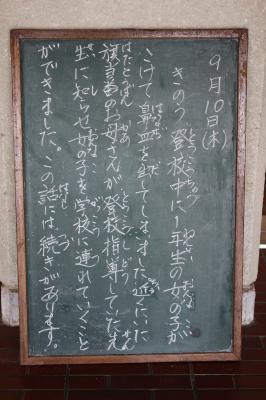 9月10日(木)
きのう登校中に1年生の女の子が
こけて鼻血を出してしまいました。近くにいた
旗当番のお母さんが、登校指導していた先
生に知らせ女の子を学校に連れていくこと
ができました。この話には続きがあります。